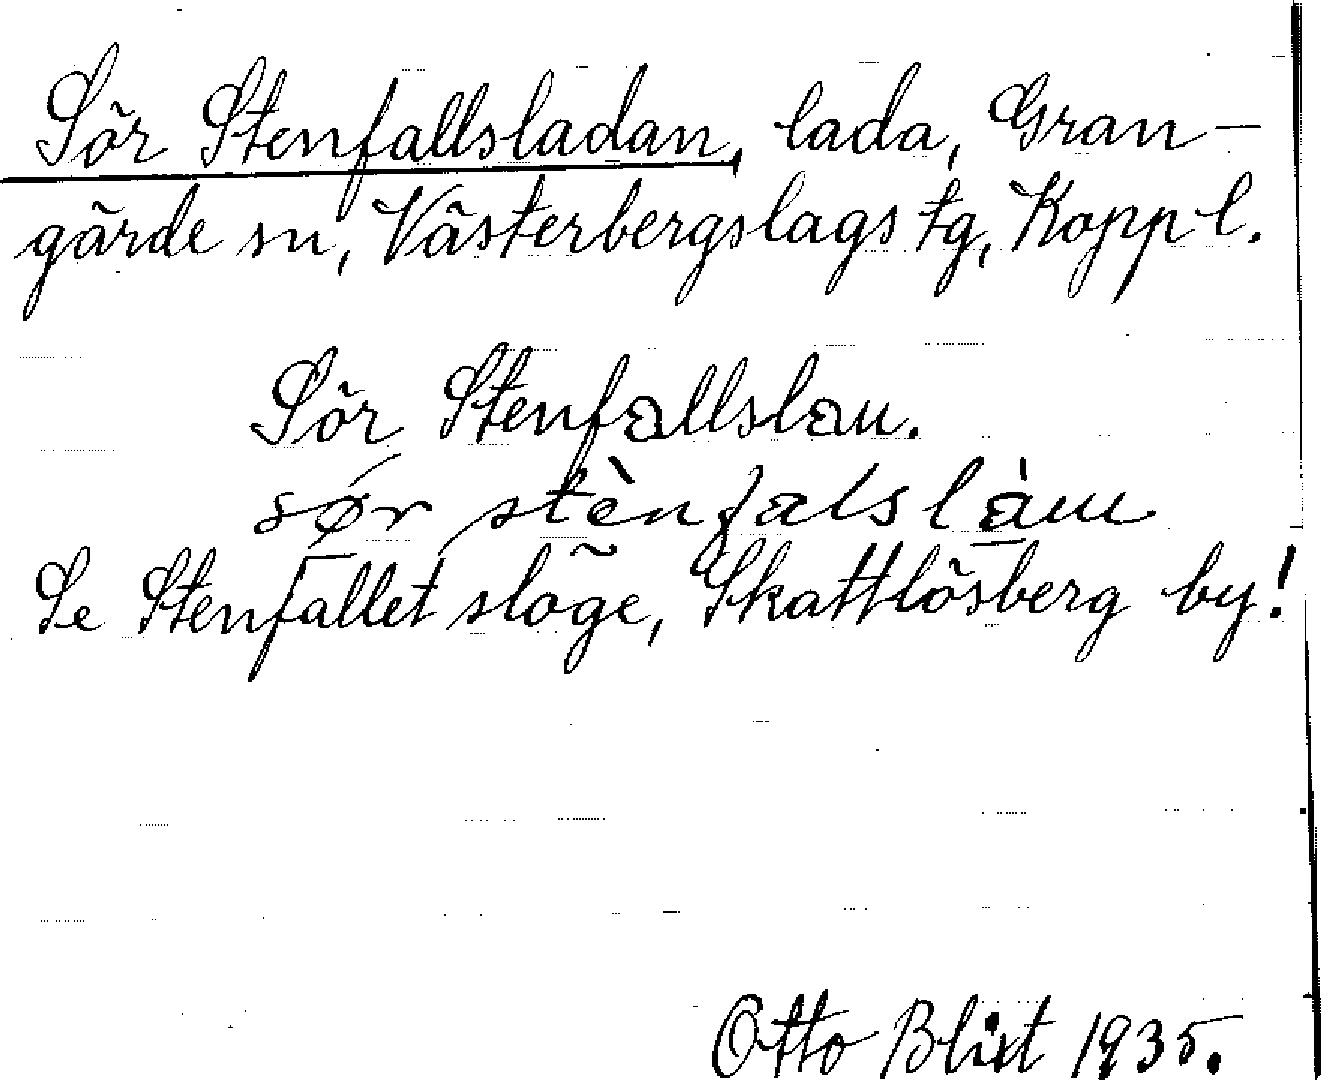 Sör Stenfallsladan, lada, Gran-
gärde sn, Västerbergslags tg, Kopp l.
Sör Stenfallslau.
sør stènfalslàu
Se Stenfallet slåge, Skattlösberg by!
Otto Blixt 1935.